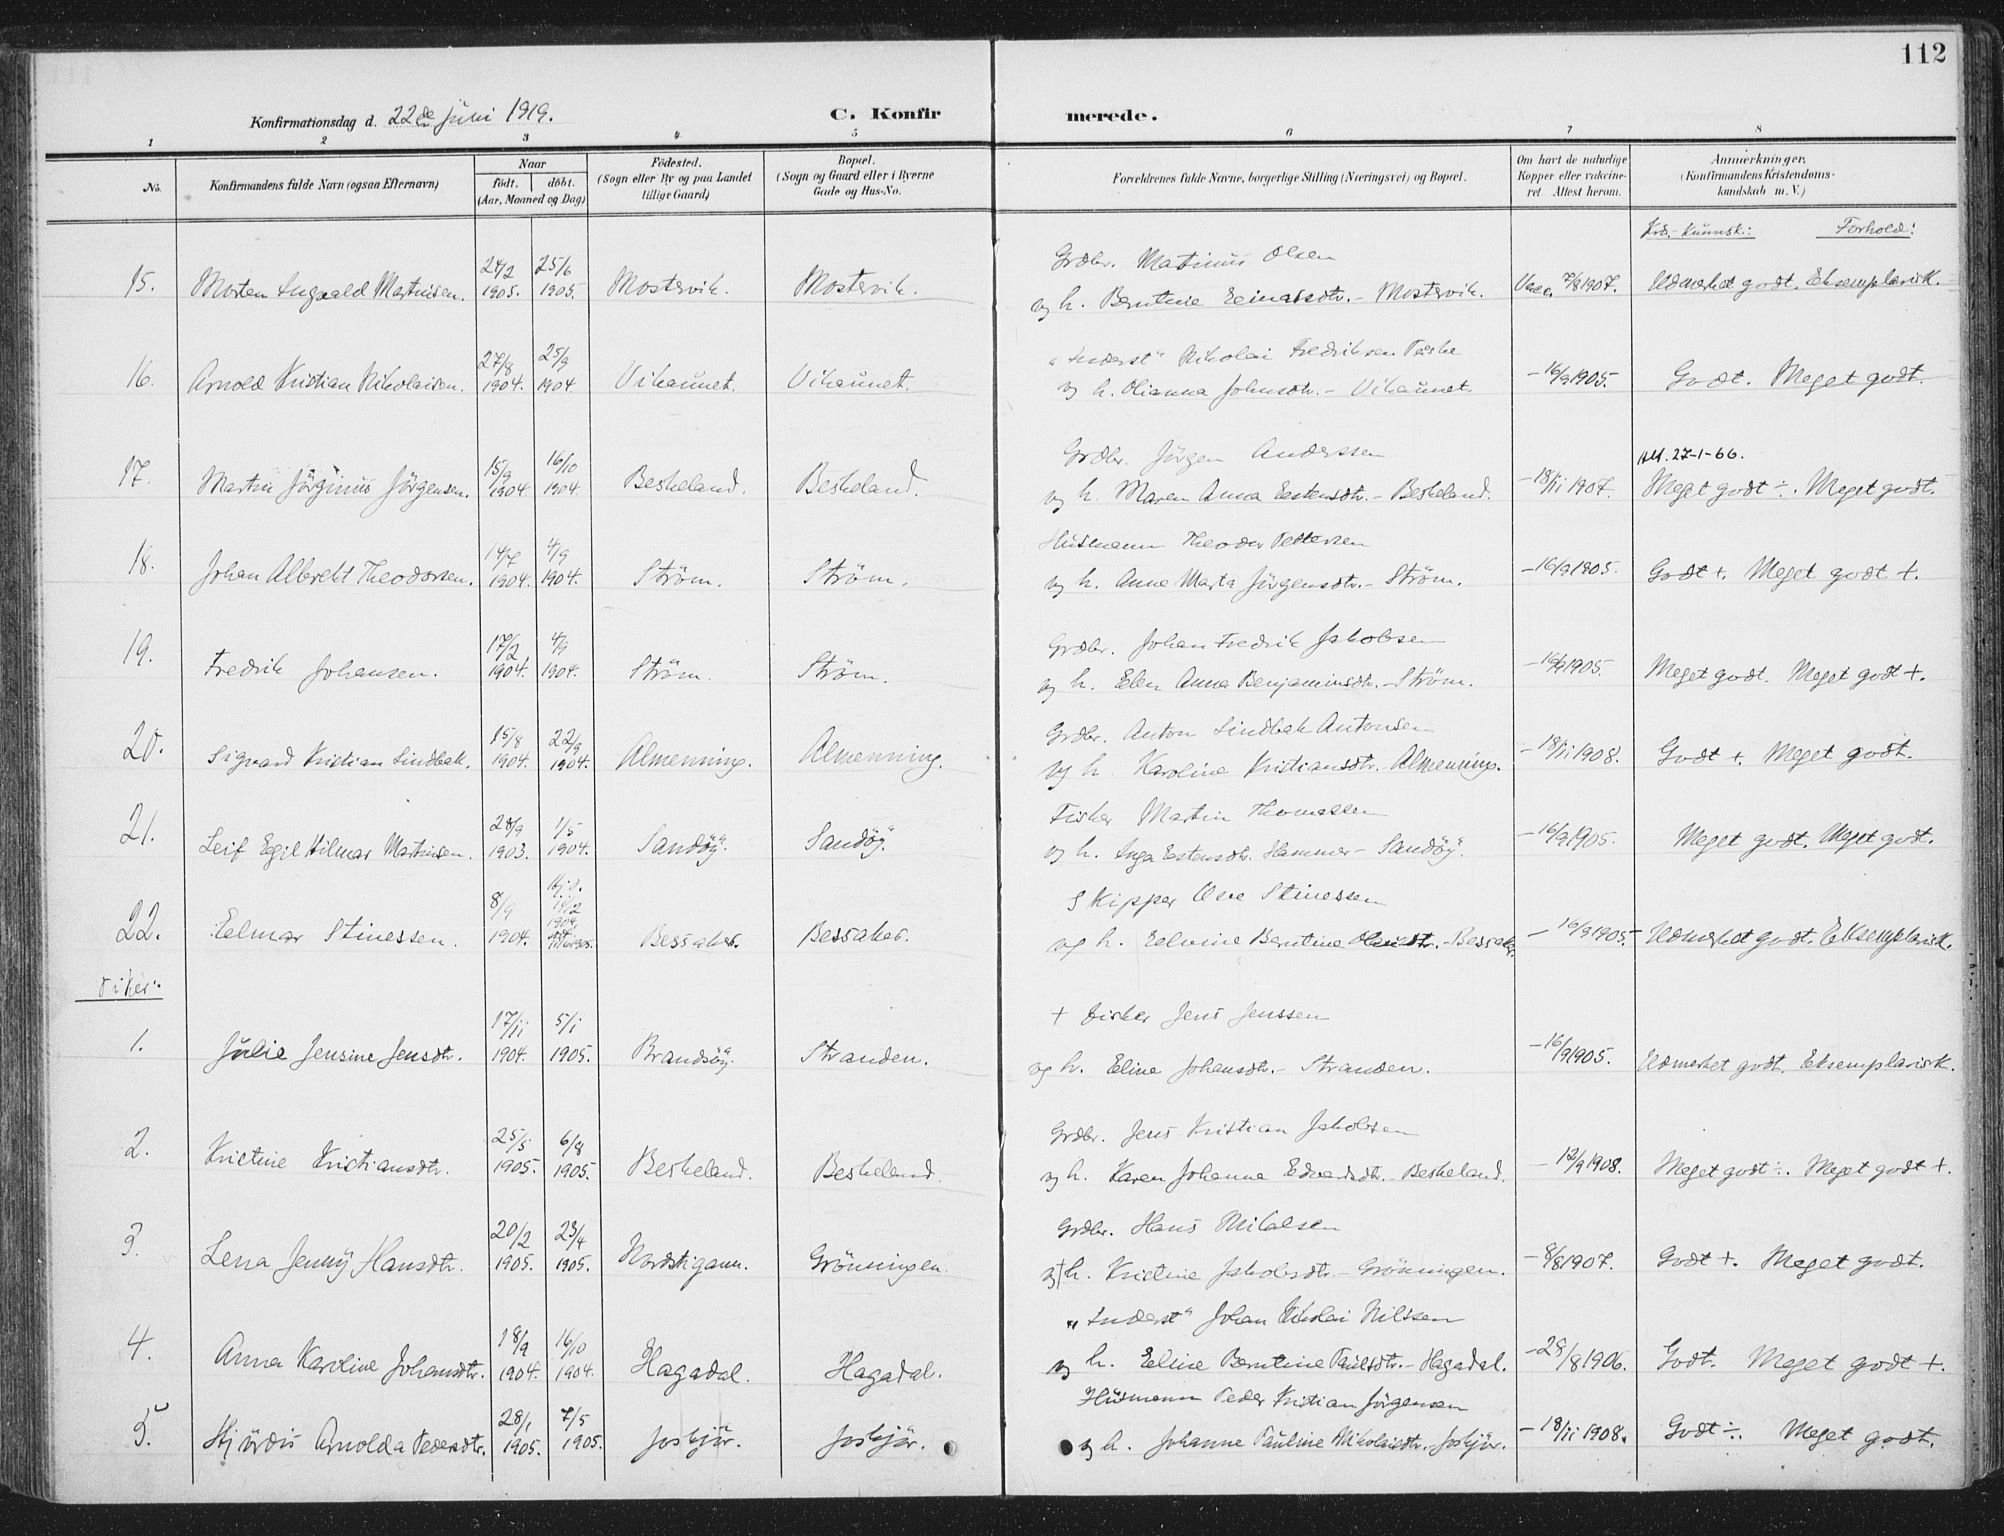 112
Konfirmationsdag d. 22de juni 1919.
C. Konfirmerede.
1 2 3 4 5 6 7 8
No.
Konfirmandens fulde Navn (ogsaa Efternavn)
Naar
født. døbt.
(Aar, Maaned og Dag)
Fødested.
(Sogn eller By og paa Landet
tillige Gaard)
Bopæl.
(Sogn og Gaard eller i Byerne
Gade og Hus-No.
Forældrenes fulde Navne, borgerlige Stilling (Næringsvei) og Bopæl.
Om havt de naturlige
Kopper eller vakcine-
ret Attest herom.
Anmærkninger.
(Konfirmandens Kristendoms-
kundskab m. V.)
Krd.-Kunnsk.: Forhold:
Grdbr. Martinus Olsen
15. Morten Ingvald Martinsen. 24/2 1905. 25/6 1905. Mostervik. Mostervik. og h. Berntine Einarsdtr. - Mostervik. Vacc. 7/8 1907. Udmerket godt. Eksemplarisk.
"Inderst" Nikolai Fredriksen
16. Arnold Kristian Nikolaisen. 27/8 1904. 25/9 1904 Vikaunet. Vikaunet. og h. Olianna Johnsdtr. - Vikaunet. - 16/9 1905. Godt. Meget godt.
Grdbr. Jörgen Anderssen
Att. 27-1-66.
17. Martin Jörginus Jörgensen. 15/9 1904. 16/10 1904. Beskeland. Beskeland. og h. Maren Anna Estensdtr. - Beskeland. - 18/11 1907. Meget godt ÷. Meget godt.
Husmann Theodor Pettersen
18. Johan Albrekt Theodorsen. 14/7 1904. 4/9 1904. Ström. Ström. og h. Anne Marta Jörgensdtr. - Ström. - 16/9 1905. Godt +. Meget godt +.
Grdbr. Johan Fredrik Jakobsen
19. Fredrik Johansen. 17/2 1904. 4/9 1904. Ström. Ström. og h. Elen Anna Benjaminsdtr. - Ström. - 16/9 1905. Meget godt. Meget godt +.
Grdbr. Anton Lindbak Antonsen
20. Sigvard Kristian Lindbak. 15/8 1904. 22/9 1904. Almenning. Almenning. og h. Karoline Kristiansdtr. - Almenning. - 18/11 1908. Godt +. Meget godt.
Fisker Martin Thomassen
21. Leif Egil Hilmar Martinsen. 28/9 1903. 1/5 1904. Sandöy. Sandöy. og h. Inga Estensdtr. Hammer - Sandöy. - 16/9 1905. Meget godt. Meget godt.
Skipper Ove Stinessen
22. Eelmar Stinessen. 8/9 1904. Hj.d. 1904. Bessaker. Bessaker. og h. Eelvine Berntine Olausdtr. - Bessaker. - 16/9 1905. - Udmerket godt. Eksemplarisk.
Piker:
+ Fisker Jens Jenssen
1. Julie Jensine Jensdtr. 17/11 1904. 5/1 1905. Brandsöy. Stranden. og h. Eline Johansdtr. - Stranden. - 16/9 1905. Udmerket godt. Eksemplarisk.
Grdbr. Jens Kristian Jakobsen
2. Kristine Kristiansdtr. 25/5 1905. 6/8 1905. Beskeland. Beskeland. og h. Karen Johanna Edvardsdtr. - Beskeland. - 12/9 1908. Meget godt ÷. Meget godt +.
Grdbr. Hans Mikalsen
3. Lena Jenny Hansdtr. 20/2 1905. 23/4 1905. Nordstigann. Grönningen. og + h. Kristine Jakobsdtr. - Grönningen. - 8/8 1907. Godt +. Meget godt.
"Inderst" Johan Nikolai Nilssen
4. Anna Karoline Johansdtr. 18/9 1904. 16/10 1904. Hagadal. Hagadal. og h. Eeline Berntine Paulsdtr. - Hagadal. - 28/8 1906. Godt. Meget godt +.
Husmann Peder Kristian Jörgensen
5. Hjördis Arnolda Pedersdtr. 28/1 1905. 7/5 1905. Joskjör. Joskjör. og h. Johanne Pauline Nikolaisdtr. Joskjör. - 18/11 1908. Godt ÷. Meget godt.